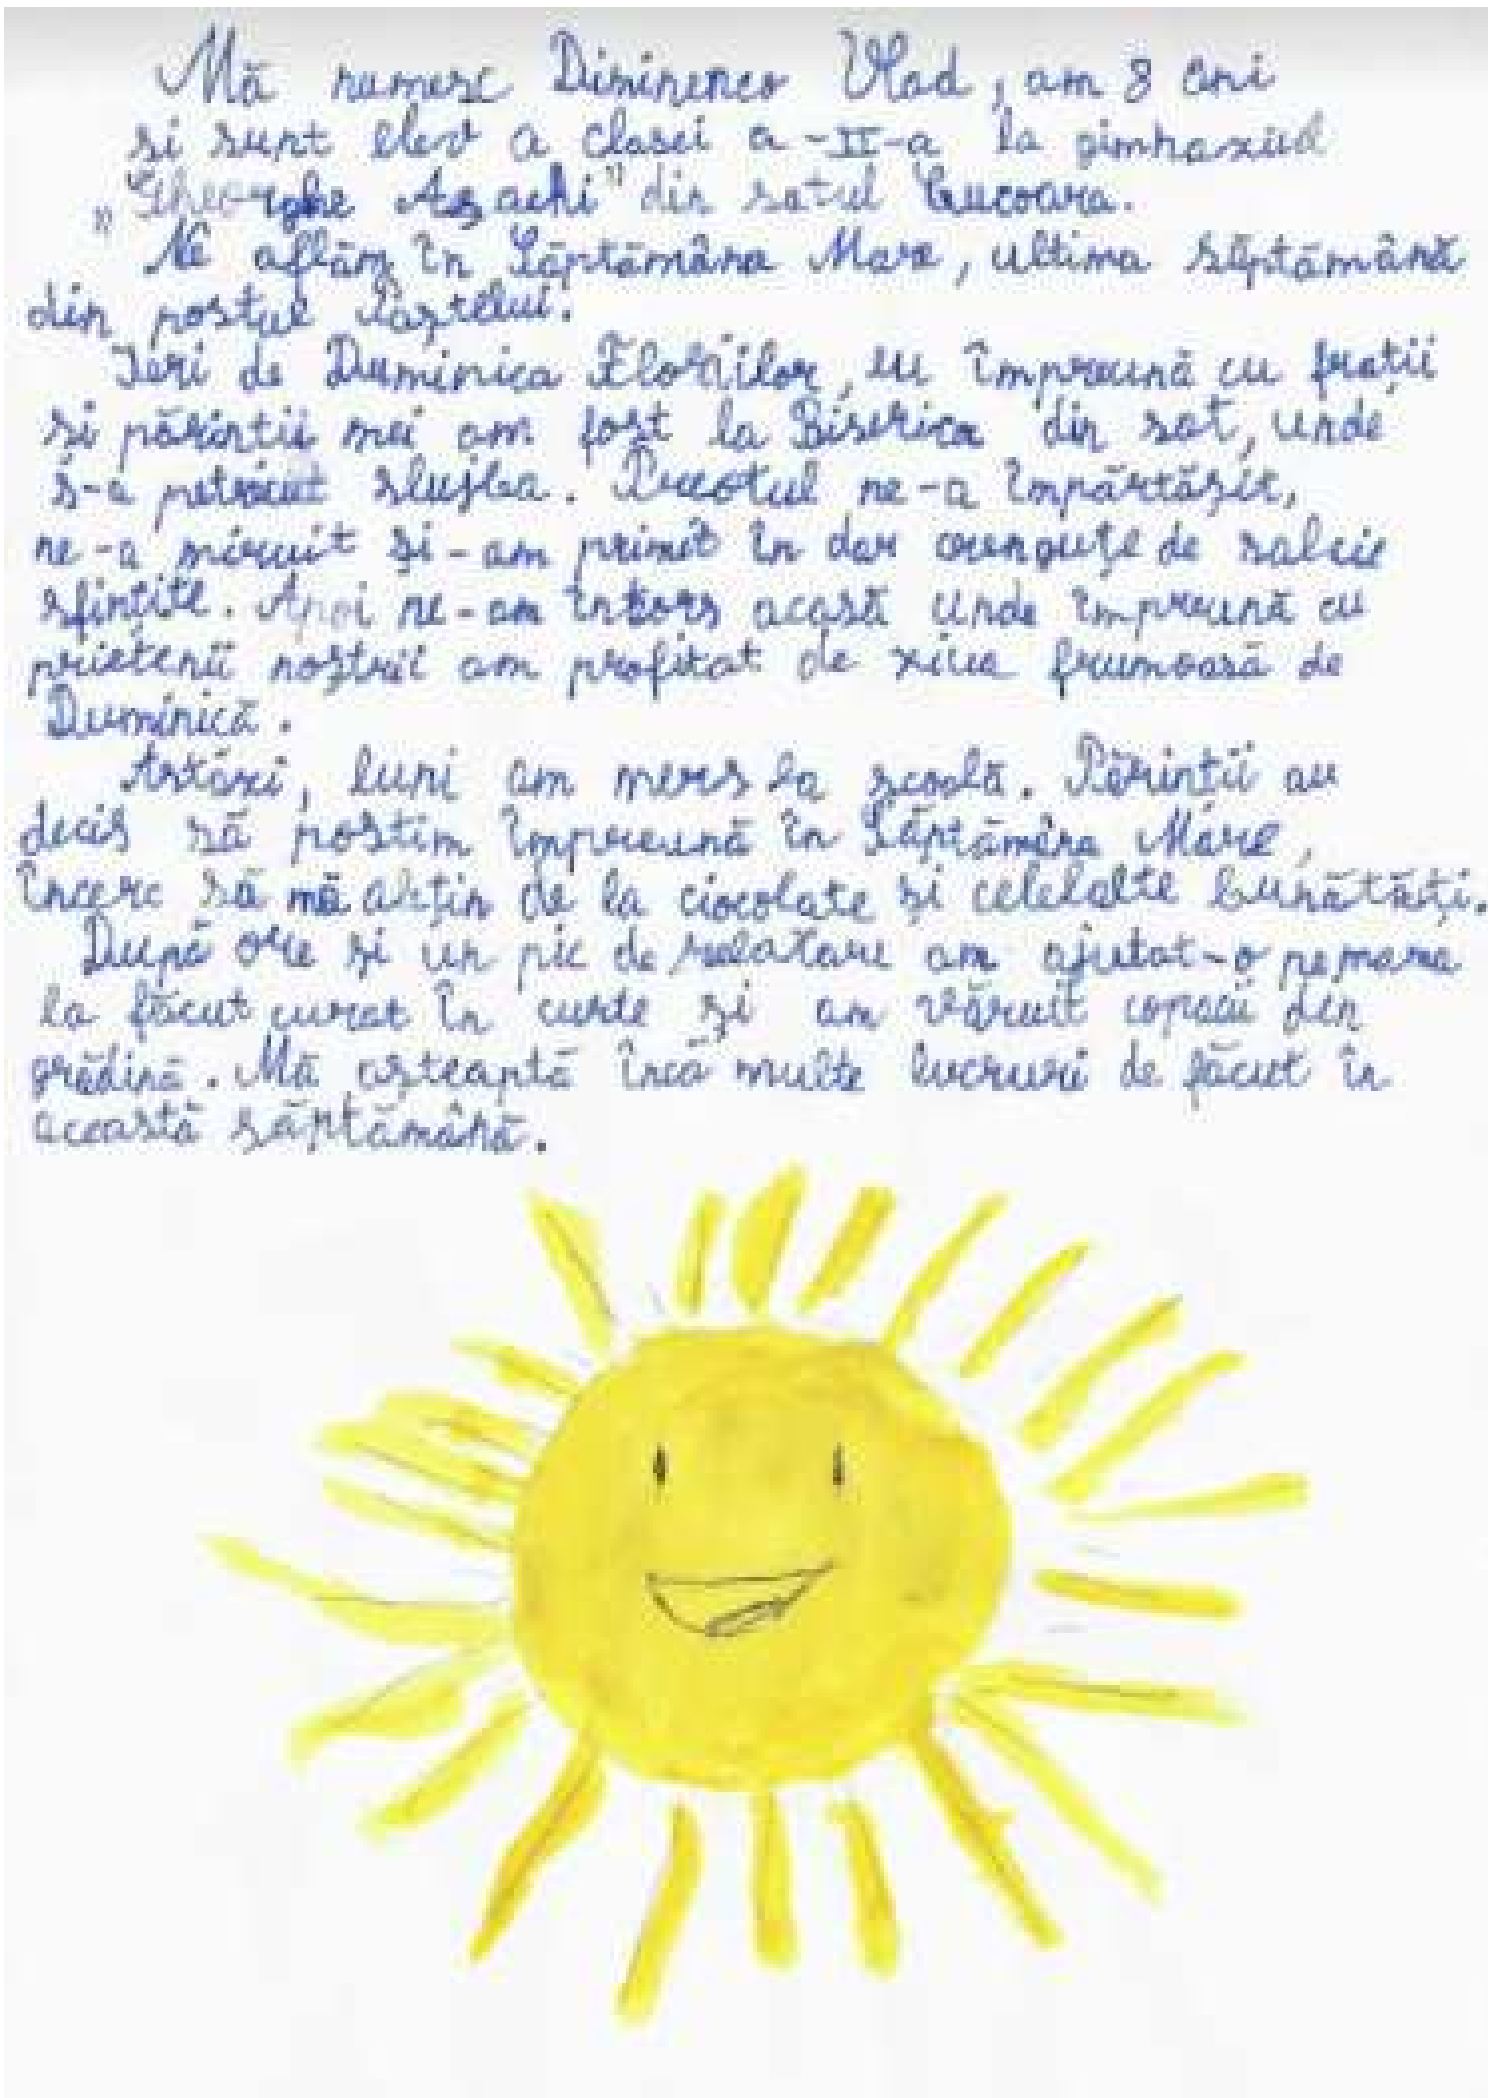 Mă numesc Diminenco Vlad, am 8 ani
și sunt elev a clasei a-II-a la gimnaziul
„Gheorghe Asachi" din satul Cucoara.
Ne aflăm în Săptămâna Mare, ultima săptămână
din postul Paștelui.
Ieri de Duminica Floriilor, eu împreună cu frații
și părinții mei am fost la Biserica din sat, unde
s-a petrecut slujba. Preotul ne-a împărtășit,
ne-a miruit și-am primit în dar crenguțe de salcie
sfințite. Apoi ne-am întors acasă unde împreună cu
prietenii noștrii am profitat de ziua frumoasă de
Duminică.
Astăzi, luni am mers la școală. Părinții au
decis să postim împreună în Săptămâna Mare,
încerc să mă abțin de la ciocolate și celelalte bunătăți.
După ore și un pic de relaxare am ajutat-o pe mama
la făcut curat în curte și am văruit copacii din
grădină. Mă așteaptă încă multe lucruri de făcut în
această săptămână.